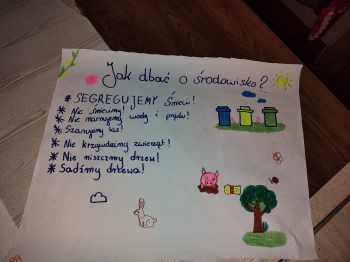 Jak dbać o środowisko?
* SEGREGUJEMY Śmieci!
* Nie śmiećmy!
* Nie marnujemy wody i prądu!
* Szanujemy las!
* Nie krzywdzimy zwierząt!
* Nie niszczmy drzew!
* Sadźmy drzewa!